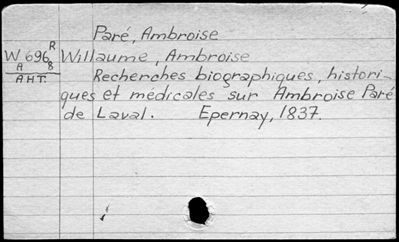 Paré, Ambroise
W 696 R Willaume, Ambroise
A 8 Recherches biographiques, histori-
A.H.T. ques et médicales sur Ambroise Paré
de Laval. Epernay, 1837.